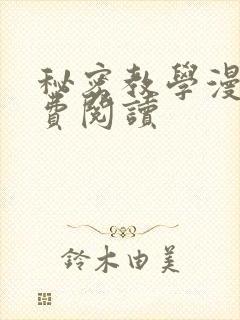 秘密教學漫
費閱讀
鈴木由美